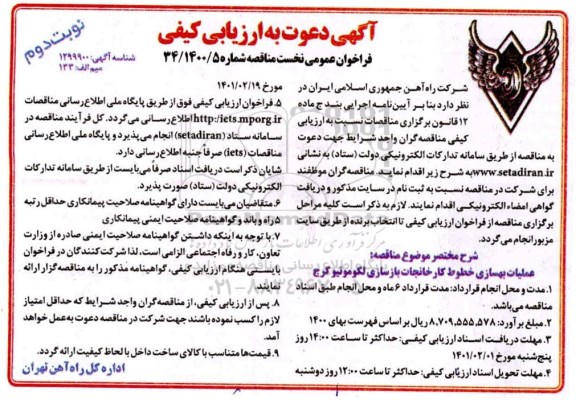 آگهی دعوت به ارزیابی کیفی
فراخوان عمومی نخست مناقصه شماره ۳۴/۱۴۰۰/۵
نوبت دوم
شناسه آگهی: ۱۲۹۹۹۰۰
میم الف: ۱۳۳
شرکت راه‌آهن جمهوری اسلامی ایران در
نظر دارد بنا بر آیین‌نامه اجرایی بند ج ماده
۱۲ قانون برگزاری مناقصات نسبت به ارزیابی
کیفی مناقصه‌گران واجد شرایط جهت دعوت
به مناقصه از طریق سامانه تدارکات الکترونیکی دولت (ستاد) به نشانی
www.setadiran.ir به شرح زیر اقدام نماید. مناقصه‌گران موظفند
برای شرکت در مناقصه نسبت به ثبت نام در سایت مذکور و دریافت
گواهی امضاء الکترونیکی اقدام نمایند. لازم به ذکر است کلیه مراحل
برگزاری مناقصه از فراخوان ارزیابی کیفی تا انتخاب برنده از طریق سایت
مزبور انجام می‌گردد.
شرح مختصر موضوع مناقصه:
عملیات بهسازی خطوط کارخانجات بازسازی لکوموتیو کرج
۱. مدت و محل انجام قرارداد: مدت قرارداد ۶ ماه و محل انجام طبق اسناد
مناقصه می‌باشد.
۲. مبلغ برآورد: ۸,۷۰۹,۵۵۵,۵۷۸ ریال بر اساس فهرست بهای ۱۴۰۰
۳. مهلت دریافت اسناد ارزیابی کیفی: حداکثر تا ساعت ۱۴:۰۰ روز
پنج‌شنبه مورخ ۱۴۰۱/۰۲/۰۱
۴. مهلت تحویل اسناد ارزیابی کیفی: حداکثر تا ساعت ۱۲:۰۰ روز دوشنبه
مورخ ۱۴۰۱/۰۲/۱۹
۵. فراخوان ارزیابی کیفی فوق از طریق پایگاه ملی اطلاع‌رسانی مناقصات
http:/iets.mporg.ir اطلاع‌رسانی می‌گردد. کل فرآیند مناقصه در
سامانه ستاد (setadiran) انجام می‌پذیرد و پایگاه ملی اطلاع‌رسانی
مناقصات (iets) صرفاً جنبه اطلاع‌رسانی دارد.
شایان ذکر است دریافت اسناد صرفاً می‌بایست از طریق سامانه تدارکات
الکترونیکی دولت (ستاد) صورت پذیرد.
۶. متقاضیان می‌بایست دارای گواهینامه صلاحیت پیمانکاری حداقل رتبه
۵ راه و باند و گواهینامه صلاحیت ایمنی پیمانکاری
۷. با توجه به اینکه داشتن گواهینامه صلاحیت ایمنی صادره از وزارت
تعاون، کار و رفاه اجتماعی الزامی است، لذا شرکت‌کنندگان در فراخوان
بایستی هنگام ارزیابی کیفی، گواهینامه مذکور را به مناقصه‌گزار ارائه
نمایند
۸. پس از ارزیابی کیفی، از مناقصه‌گران واجد شرایط که حداقل امتیاز
لازم را کسب نموده باشند جهت شرکت در مناقصه دعوت به عمل خواهد
آمد.
۹. قیمت‌ها متناسب با کالای ساخت داخل با لحاظ کیفیت ارائه گردد.
اداره کل راه‌آهن تهران